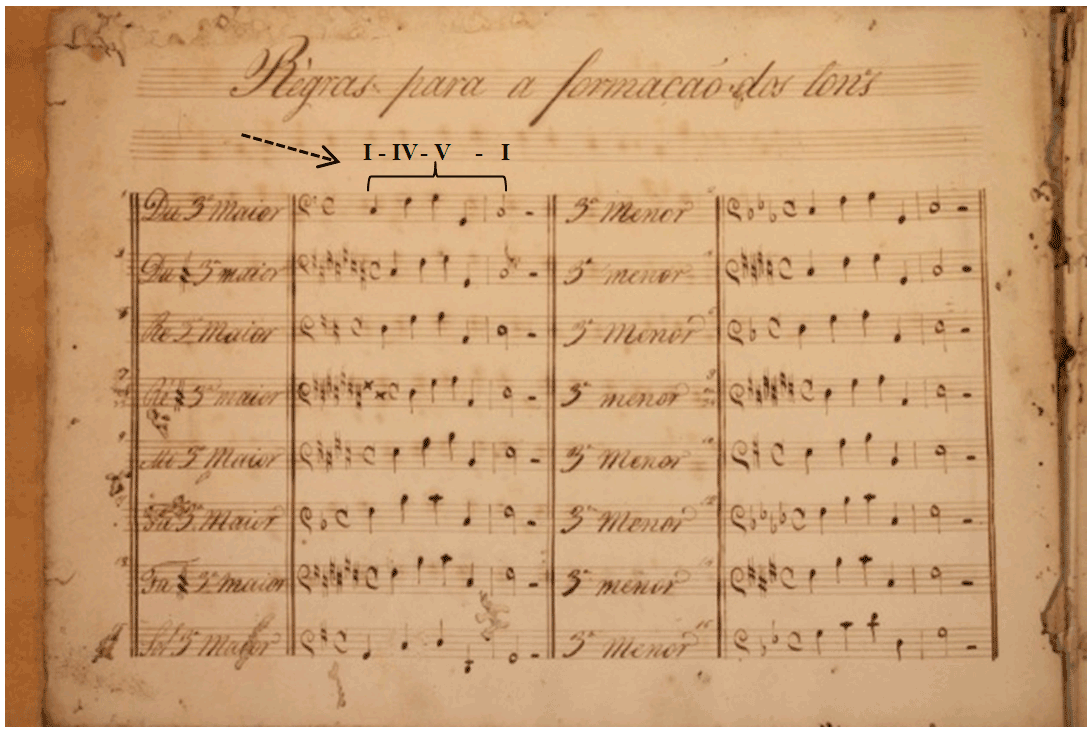 Règras para a formação dos tons
I - IV - V - I
Du 3ª Maior 3ª Menor
Du # 3ª maior 3ª menor
Re 3ª Maior 3ª Menor
Ré # 3ª maior 3ª menor
Mi 3ª Maior 3ª Menor
Fa 3ª Maior 3ª Menor
Fa # 3ª maior 3ª menor
Sol 3ª Maior 3ª Menor